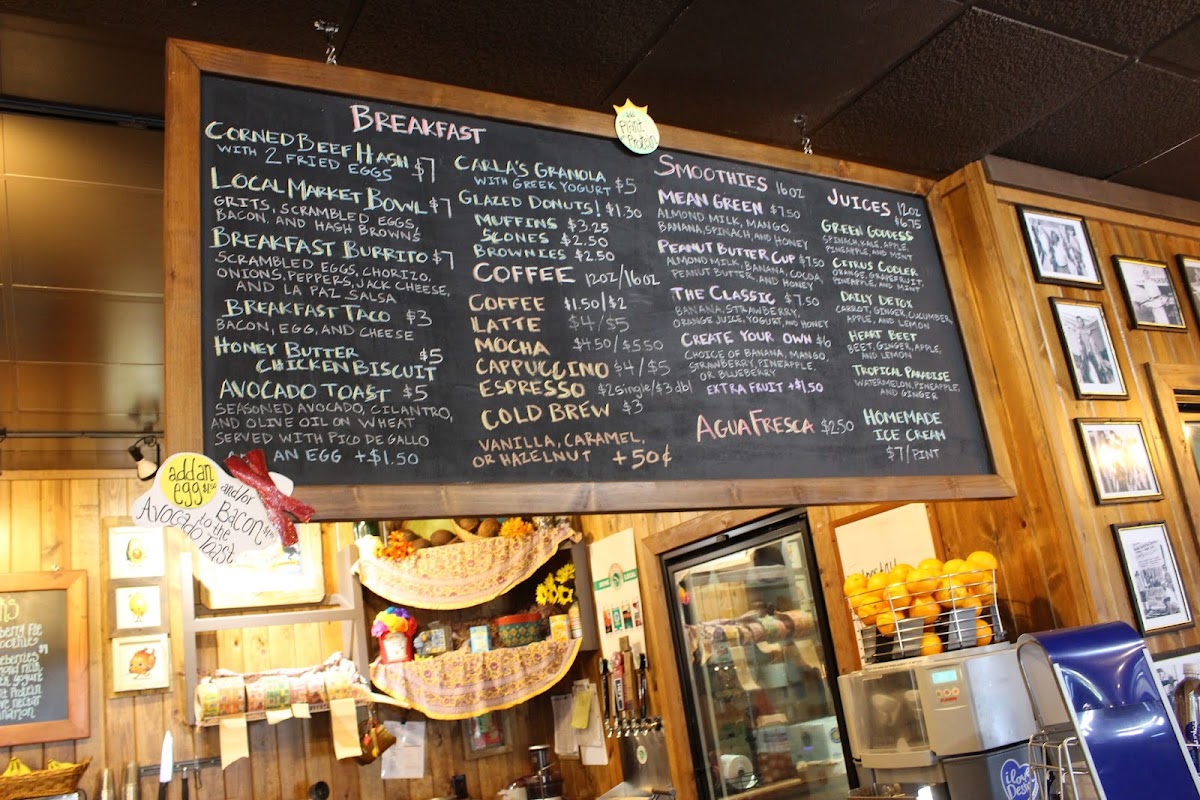 BREAKFAST
CORNED BEEF HASH $7
WITH 2 FRIED EGGS
LOCAL MARKET BOWL $7
GRITS, SCRAMBLED EGGS,
BACON, AND HASH BROWNS
BREAKFAST BURRITO $7
SCRAMBLED EGGS, CHORIZO,
ONIONS, PEPPERS, JACK CHEESE,
AND LA PAZ SALSA
BREAKFAST TACO $3
BACON, EGG, AND CHEESE
HONEY BUTTER $5
CHICKEN BISCUIT
AVOCADO TOAST $5
SEASONED AVOCADO, CILANTRO,
AND OLIVE OIL ON WHEAT
SERVED WITH PICO DE GALLO
AN EGG +$1.50
CARLA'S GRANOLA
WITH GREEK YOGURT $5
GLAZED DONUTS! $1.30
MUFFINS $3.25
SCONES $2.50
BROWNIES $2.50
COFFEE 12oz/16oz
COFFEE $1.50/$2
LATTE $4/$5
MOCHA $4.50/$5.50
CAPPUCCINO $4/$5
ESPRESSO $2single/$3dbl
COLD BREW $3
VANILLA, CARAMEL,
OR HAZELNUT +50¢
Plant
Protein
SMOOTHIES 16oz
MEAN GREEN $7.50
ALMOND MILK, MANGO,
BANANA, SPINACH, AND HONEY
PEANUT BUTTER CUP $7.50
ALMOND MILK, BANANA, COCOA,
PEANUT BUTTER, AND HONEY
THE CLASSIC $7.50
BANANA, STRAWBERRY,
ORANGE JUICE, YOGURT, AND HONEY
CREATE YOUR OWN $6
CHOICE OF BANANA, MANGO,
STRAWBERRY, PINEAPPLE,
OR BLUEBERRY
EXTRA FRUIT +$1.50
AGUA FRESCA $2.50
JUICES 12oz
$6.75
GREEN GODDESS
SPINACH, KALE, APPLE,
PINEAPPLE, AND MINT
CITRUS COOLER
ORANGE, GRAPEFRUIT,
PINEAPPLE, AND MINT
DAILY DETOX
CARROT, GINGER, CUCUMBER,
APPLE, AND LEMON
HEART BEET
BEET, GINGER, APPLE,
AND LEMON
TROPICAL PARADISE
WATERMELON, PINEAPPLE,
AND GINGER
HOMEMADE
ICE CREAM
$7/PINT
add an
egg
and/or
Bacon
to the
Avocado Toast
namon
i love